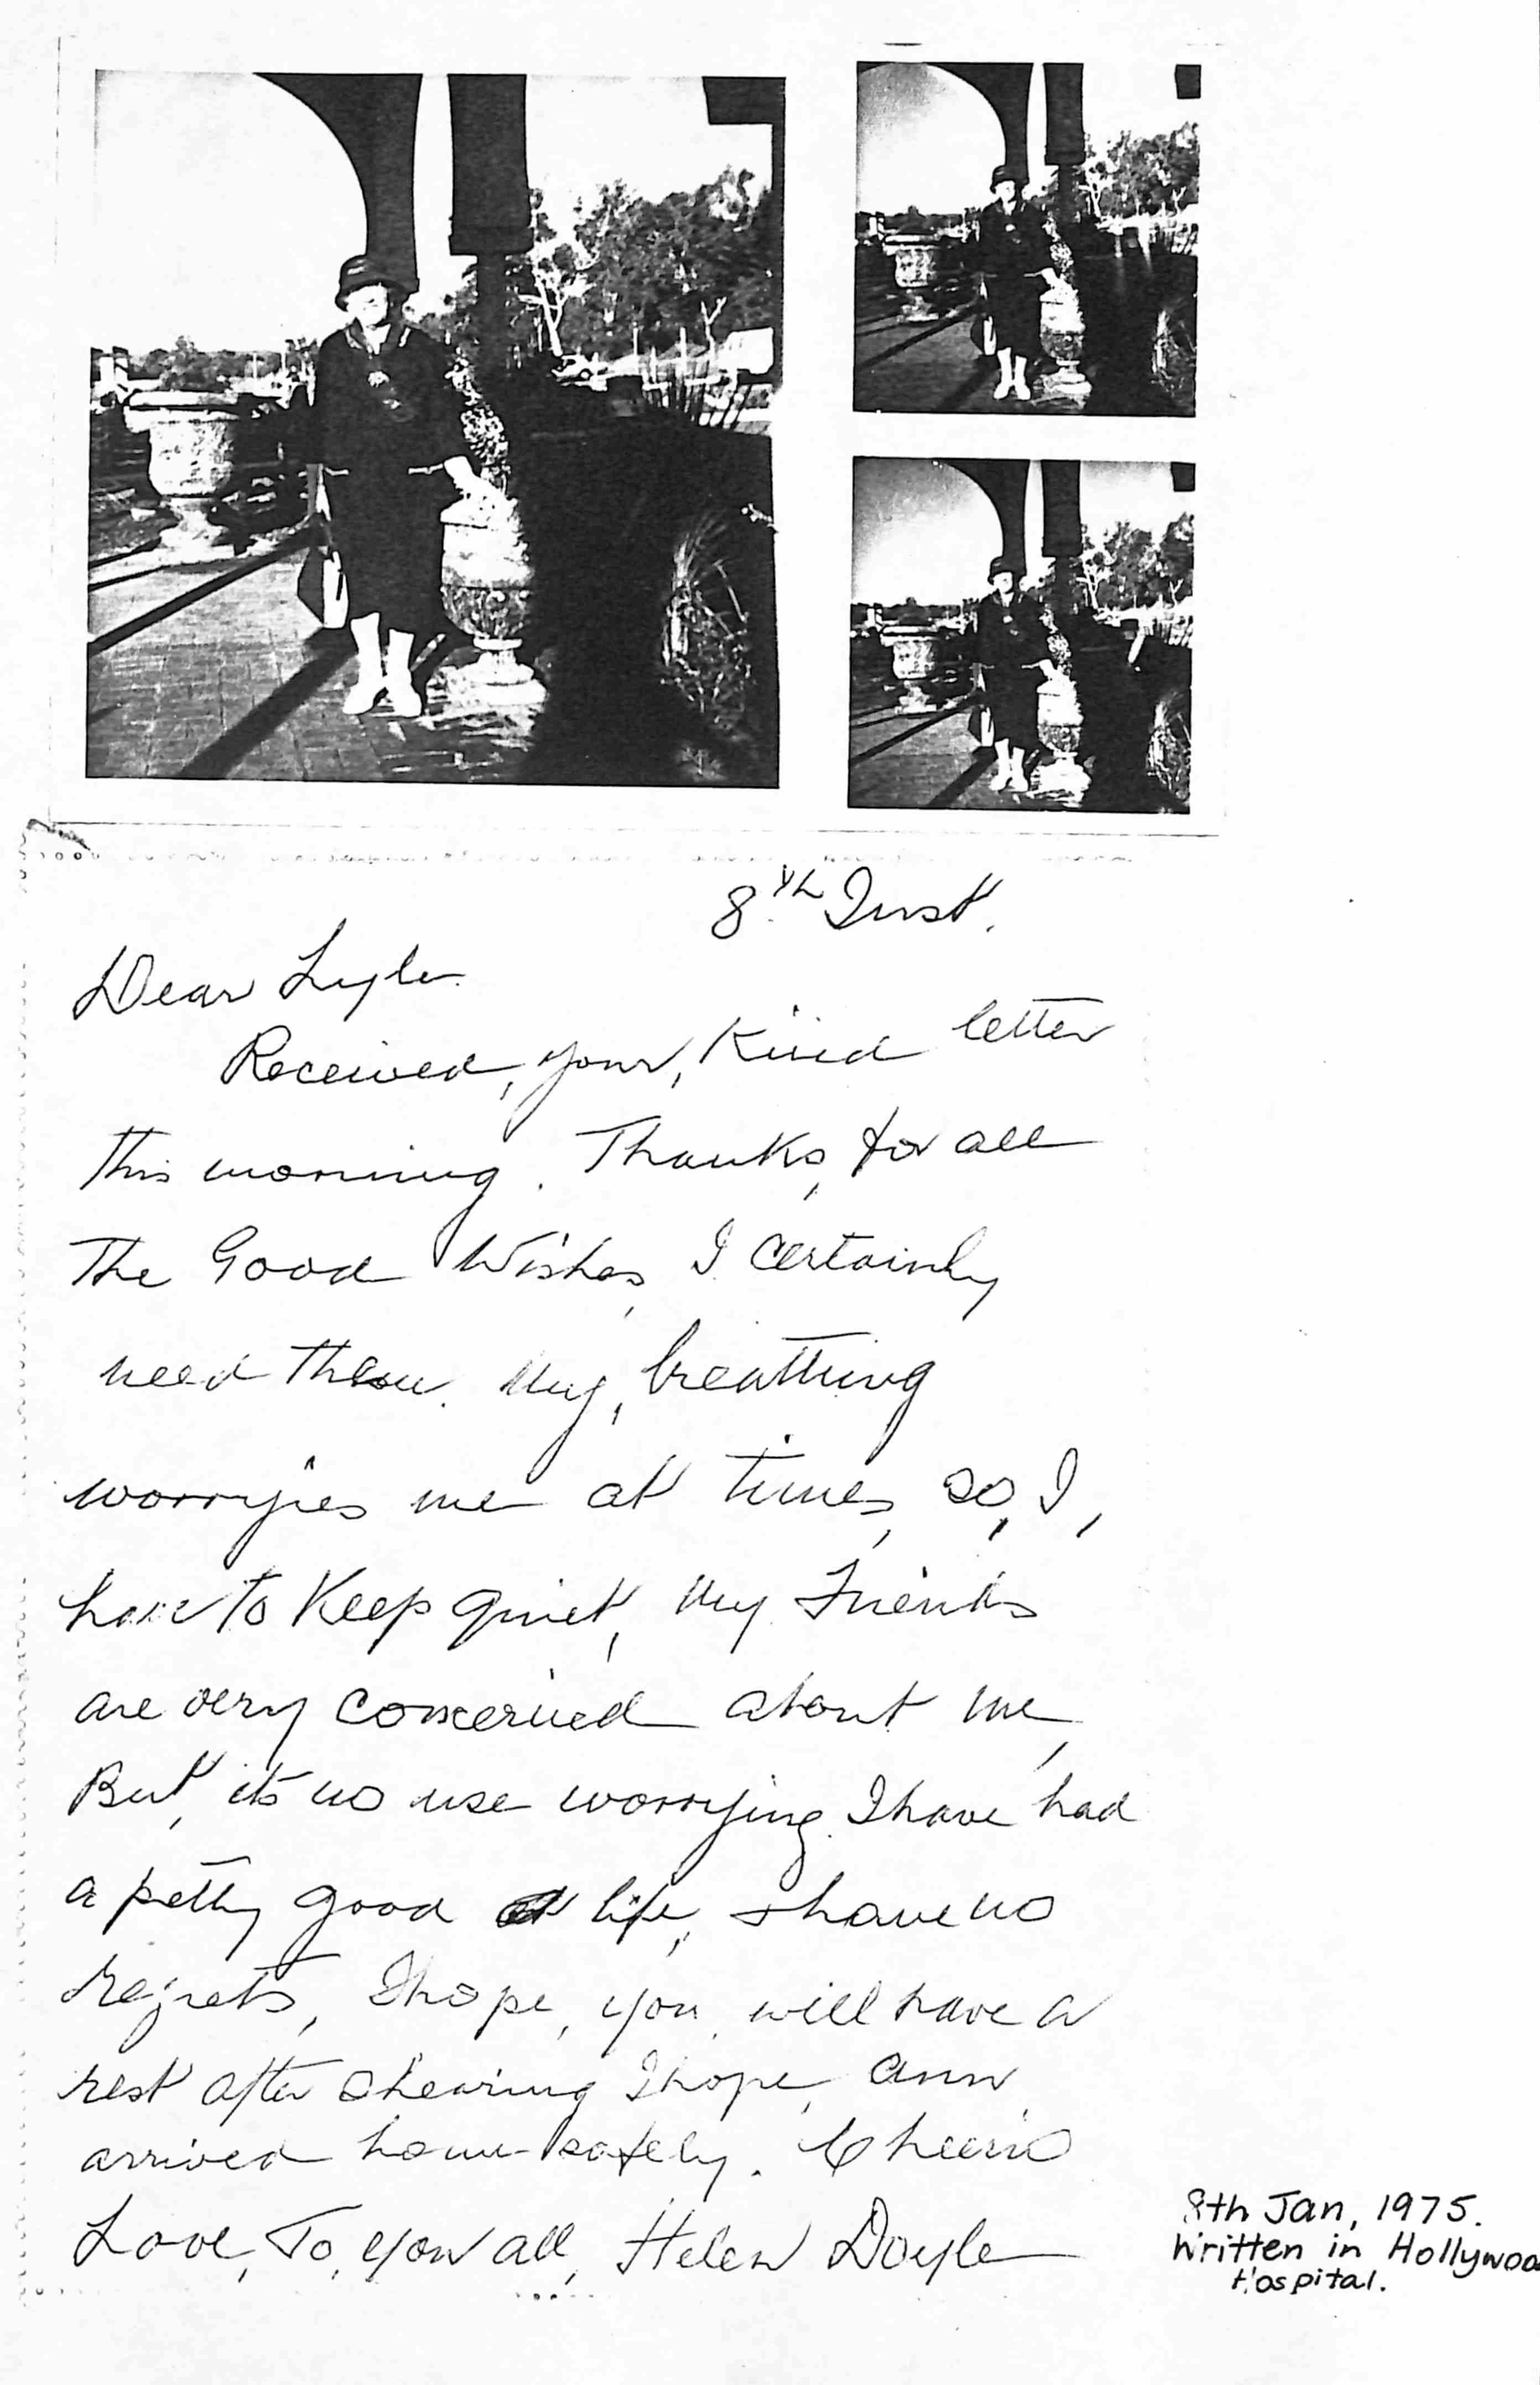 8th Inst.
Dear Lyle
Received, your, Kind letter
this morning. Thanks, for all
The Good Wishes, I certainly
need them. My, breathing
worryies me at times, so, I,
have to Keep quiet, My Friends
are very concerned about me,
But, its no use worrying. I have had
a petty good life, & have no
regrets, I hope, you, will have a
rest after shearing I hope, Ann,
arrived home safely. Cheerio
Love, To, you all, Helen Doyle
8th Jan, 1975.
Written in Hollywoo
Hospital.